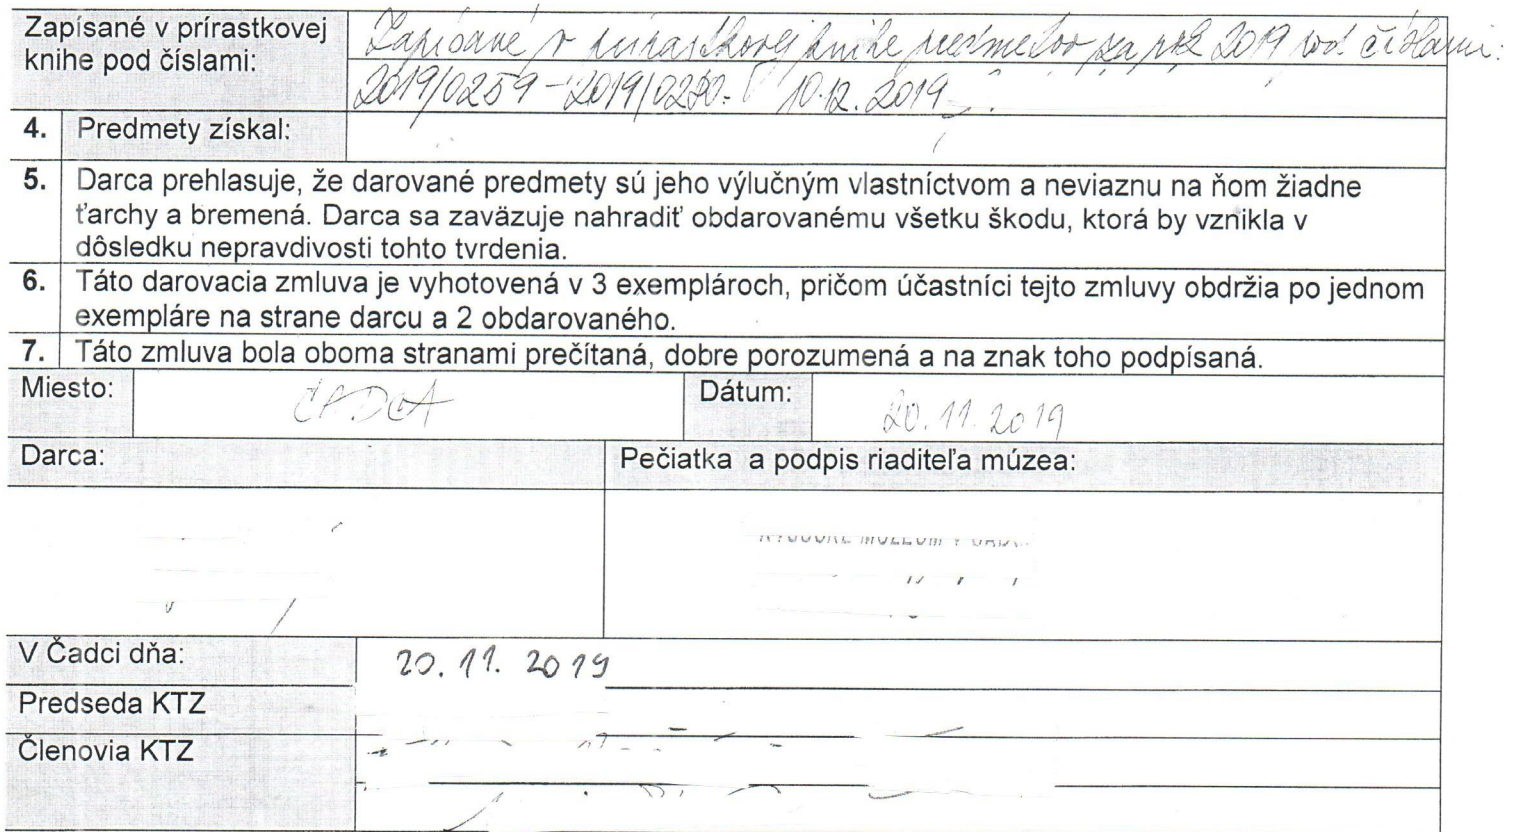 Zapísané v prírastkovej
knihe pod číslami:
Zapísané v prírastkovej knihe predmetov za rok 2019 pod číslami:
2019/0259 - 2019/0280. 10.12.2019
4. Predmety získal:
5. Darca prehlasuje, že darované predmety sú jeho výlučným vlastníctvom a neviaznu na ňom žiadne
ťarchy a bremená. Darca sa zaväzuje nahradiť obdarovanému všetku škodu, ktorá by vznikla v
dôsledku nepravdivosti tohto tvrdenia.
6. Táto darovacia zmluva je vyhotovená v 3 exemplároch, pričom účastníci tejto zmluvy obdržia po jednom
exempláre na strane darcu a 2 obdarovaného.
7. Táto zmluva bola oboma stranami prečítaná, dobre porozumená a na znak toho podpísaná.
Miesto: ČADCA Dátum: 20.11.2019
Darca: Pečiatka a podpis riaditeľa múzea:
V Čadci dňa: 20.11.2019
Predseda KTZ
Členovia KTZ